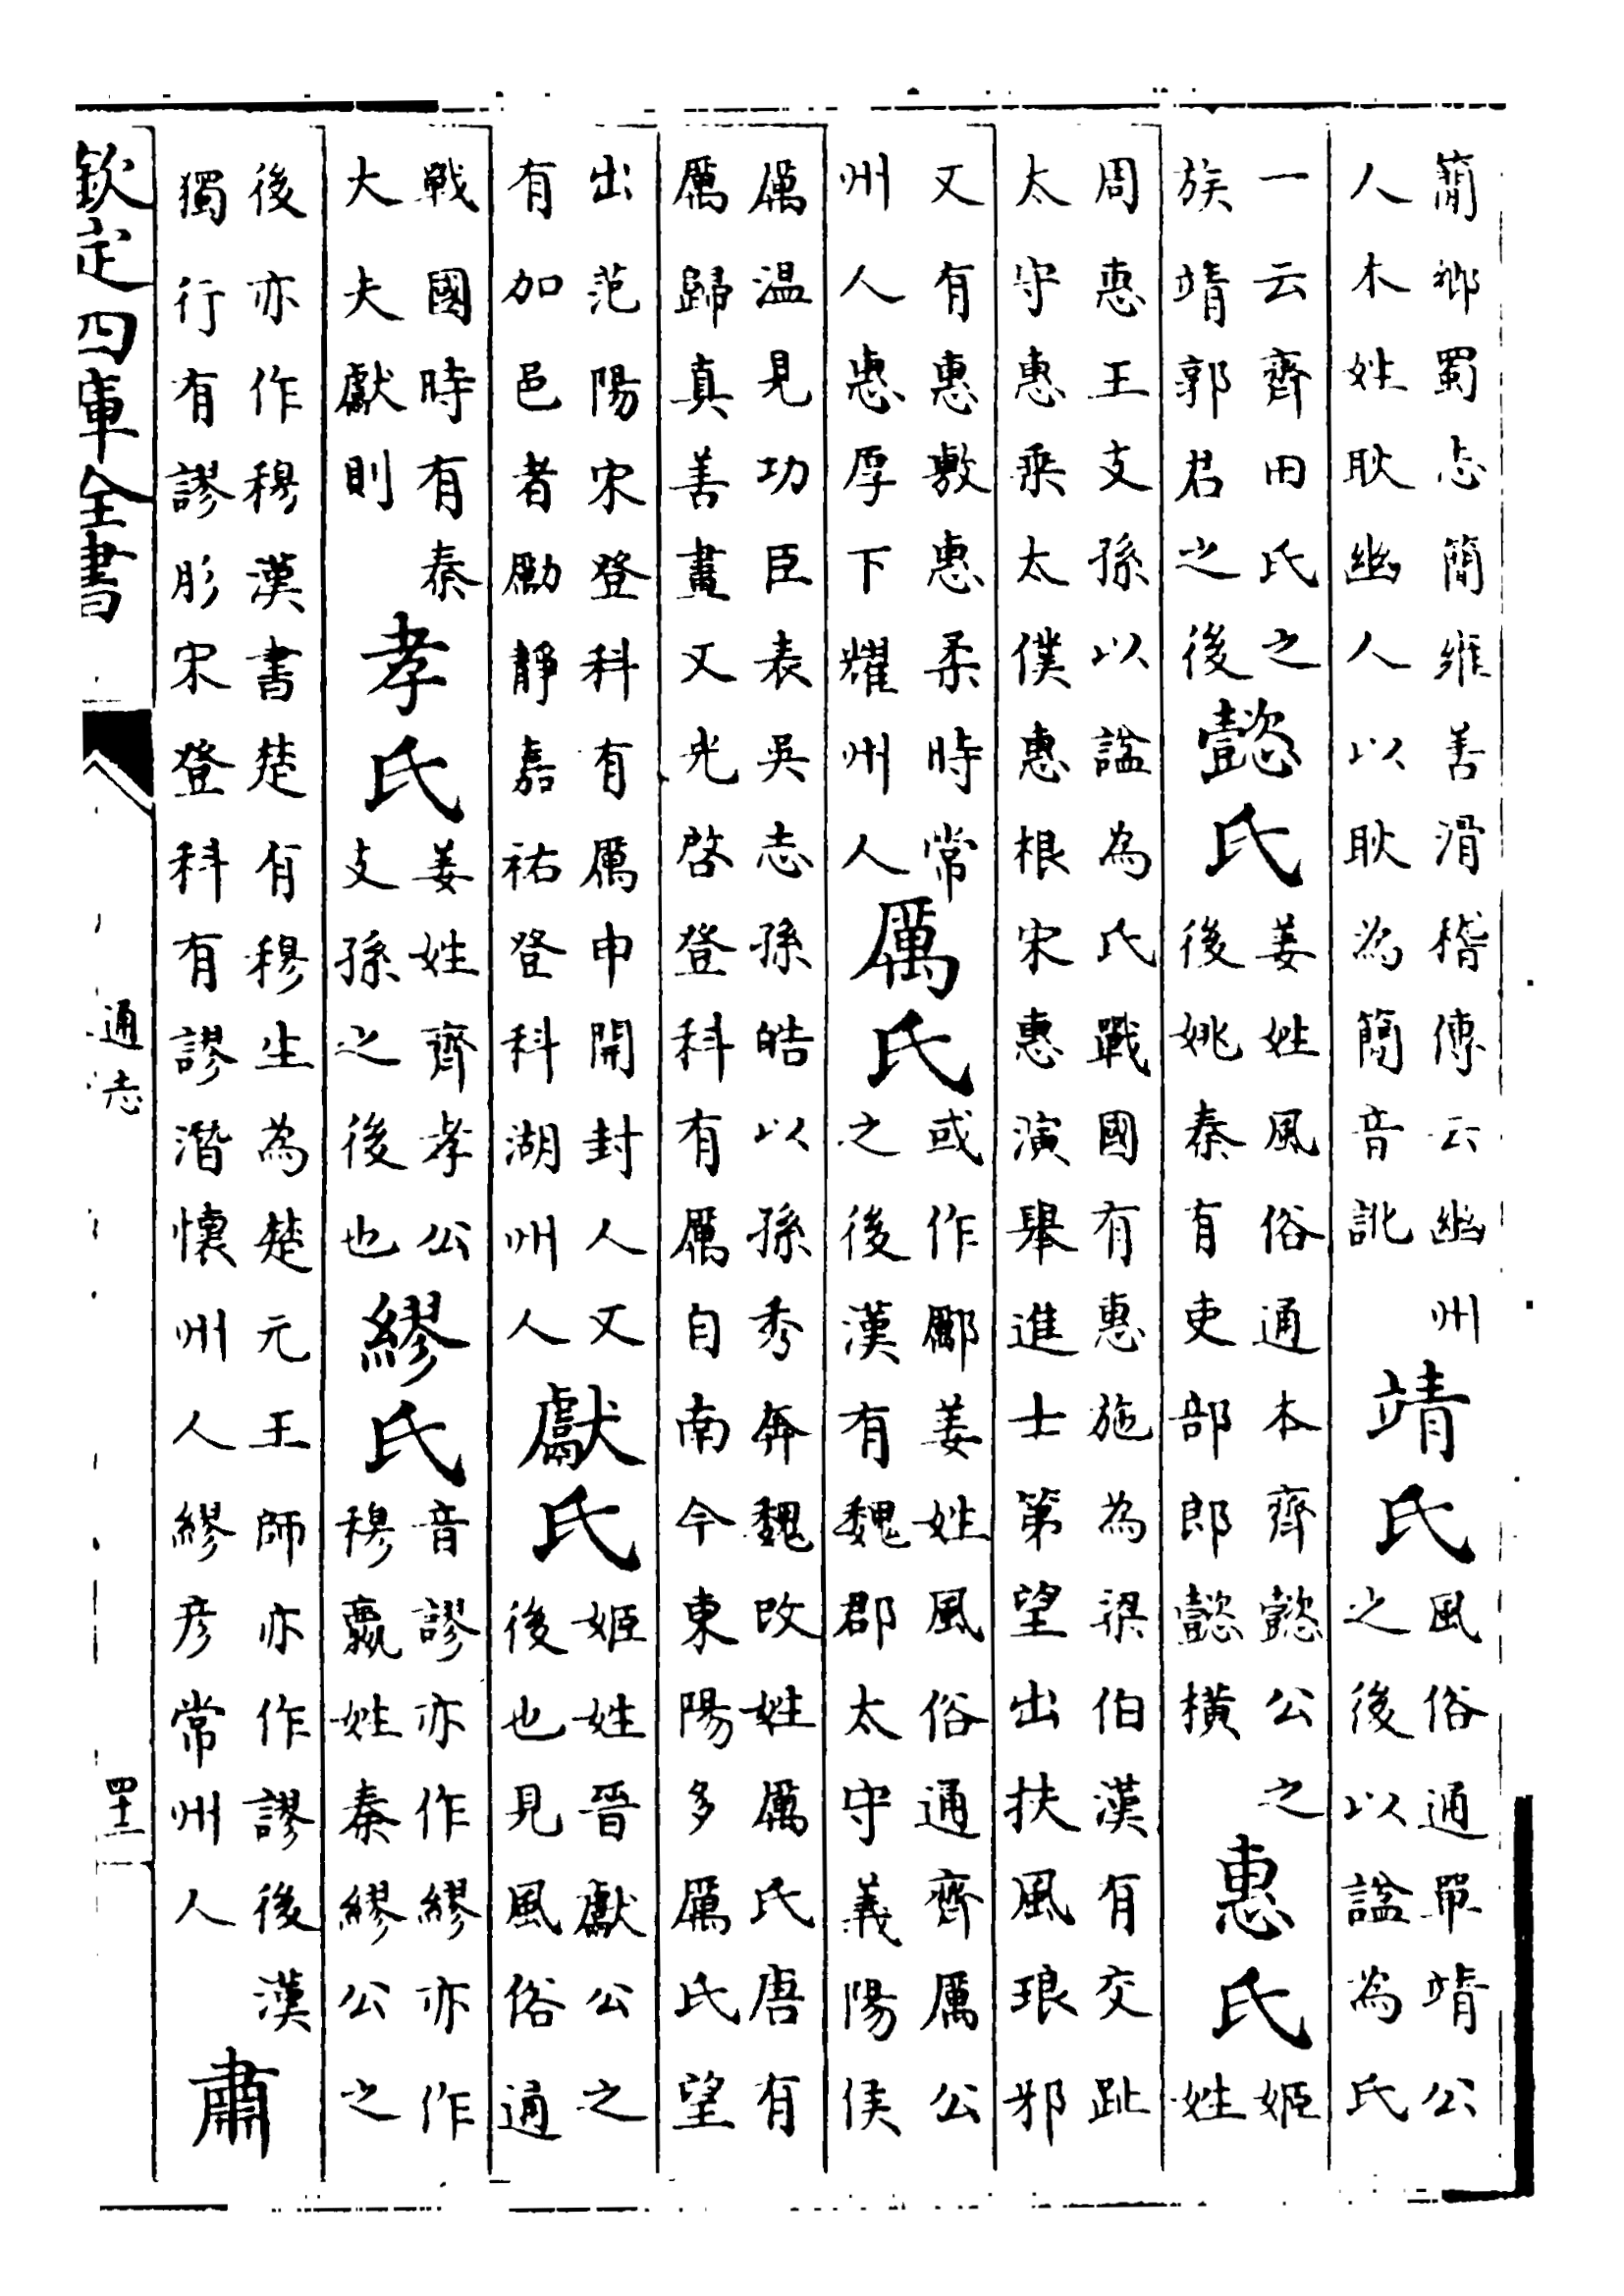 簡郷蜀志簡雍善滑稽傳云幽州
人本姓耿幽人以耿為簡音訛
靖氏
風俗通單靖公
之後以諡為氏
一云齊田氏之
族靖郭君之後
懿氏
姜姓風俗通本齊懿公之
後姚秦有吏部郎懿橫
惠氏
姬
姓
周惠王支孫以諡為氏戰國有惠施為梁伯漢有交趾
太守惠乘太僕惠根宋惠演舉進士第望出扶風琅邪
又有惠敷惠柔時常
州人惠厚下耀州人
厲氏
或作酈姜姓風俗通齊厲公
之後漢有魏郡太守義陽侯
厲温見功臣表吳志孫皓以孫秀奔魏改姓厲氏唐有
厲歸真善畫又光啓登科有厲自南今東陽多厲氏望
出范陽宋登科有厲申開封人又
有加邑者勵靜嘉祐登科湖州人
獻氏
姬姓晉獻公之
後也見風俗通
戰國時有秦
大夫獻則
孝氏
姜姓齊孝公
支孫之後也
繆氏
音謬亦作繆亦作
穆嬴姓秦繆公之
後亦作穆漢書楚有穆生為楚元王師亦作謬後漢
獨行有謬肜宋登科有謬潛懷州人繆彦常州人
肅
欽定四庫全書
通志
四十二